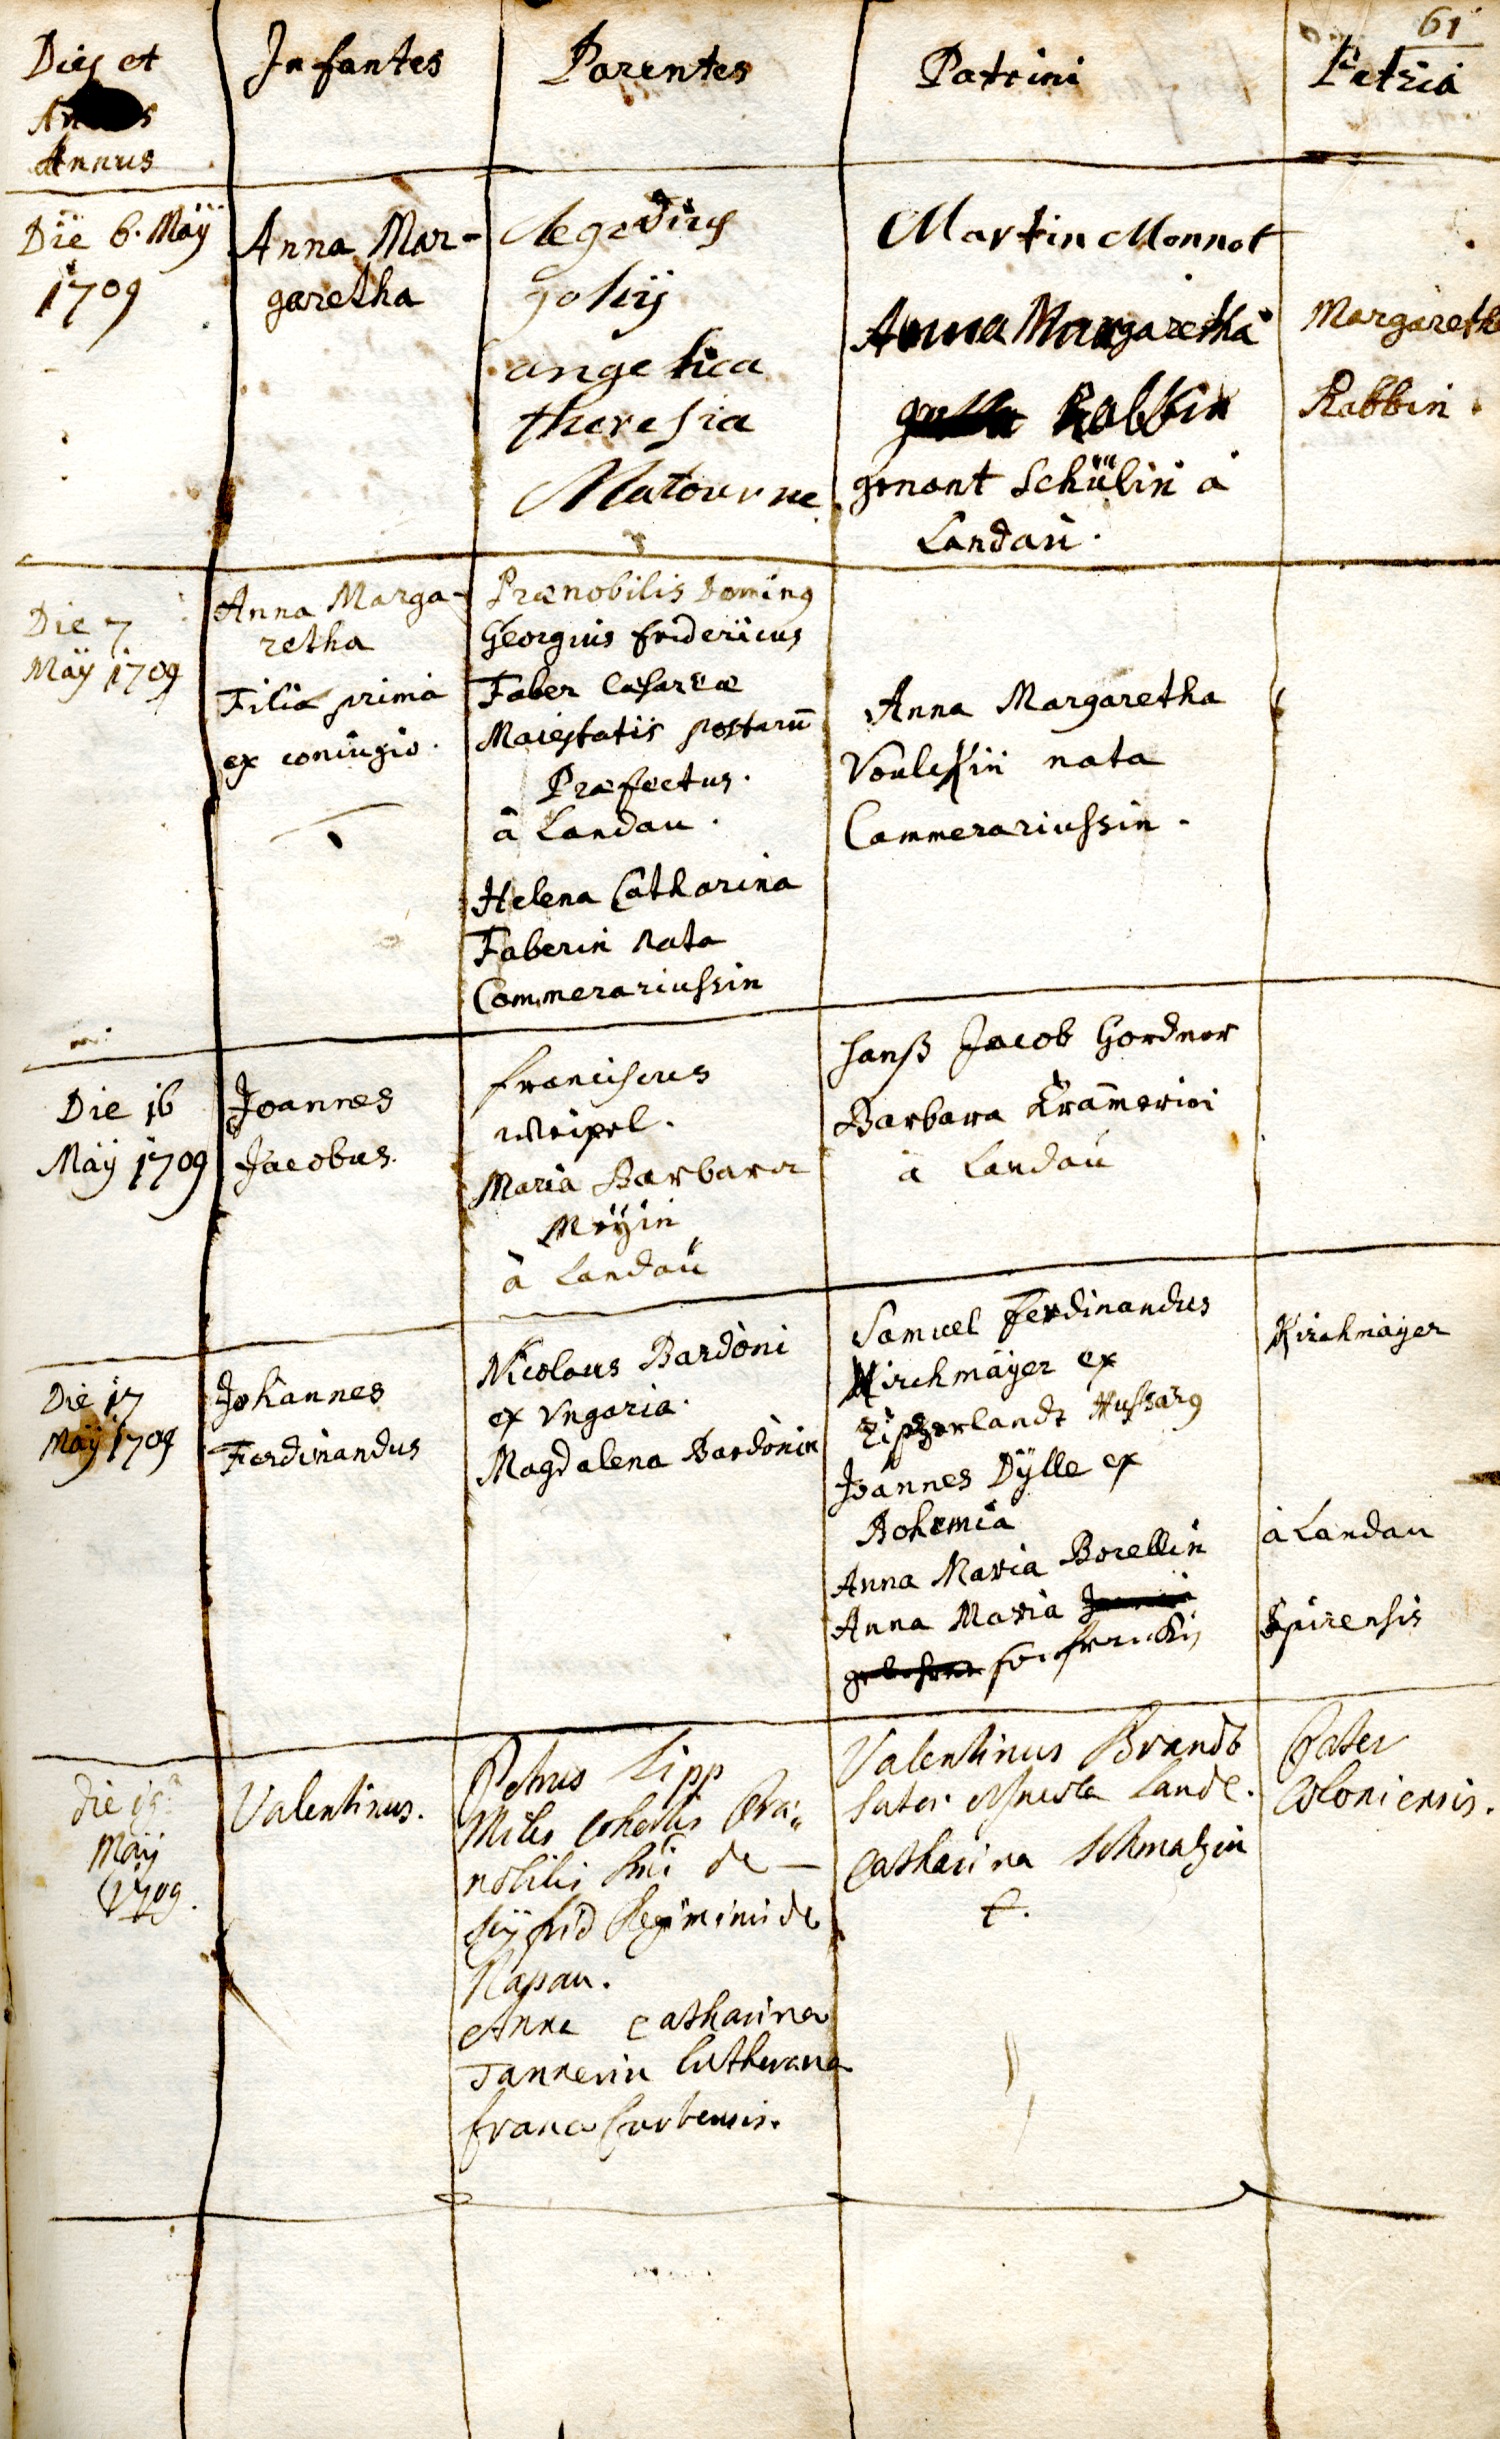 61
Dies et
Annus
Infantes
Parentes
Patrini
Patria
Die 6. Maÿ
1709
Anna Mar-
garetha
Aegedius
golÿ
angelica
theresia
Matourne
Martin Monnot
Anna Margaretha
Rabbin
genant Schülin à
Landau.
Margaretha
Rabbin.
Die 7
Maÿ 1709
Anna Marga-
retha
Filia prima
ex coniugio.
Prænobilis Dominus
Georgius Fridericus
Faber Cæsareæ
Maiestatis postarum̄
Præfectus.
à Landau.
Helena Catharina
Faberin nata
Commerariussin
Anna Margaretha
nata
Cammerariussin.
Die 16
Maÿ 1709
Joannes
Jacobus.
franciscus
weipel.
Maria Barbara
Meÿin
à Landau
Hanß Jacob Gordner
Barbara
à Landau
Die 17
Maÿ 1709
Johannes
Ferdinandus
Nicolaus Bardoni
ex Vngaria.
Magdalena Bardonin
Samuel Ferdinandus
Kirchmaÿer ex
Zipßerlandt Hussarus
Joannes Dÿlle ex
Bohemia
Anna Maria Borellin
Anna Maria
Kirchmaÿer
à Landau
Spirensis
die
Maÿ
1709.
Valentinus.
Petrus Lipp
Miles Præ-
nobilis Dni de
Seÿfrid Regiminis de
Anna Catharina
Tannerin Lutherana
francofurtensis.
Valentinus Brandt
Catharina Schmalzin
Pater
Coloniensis.